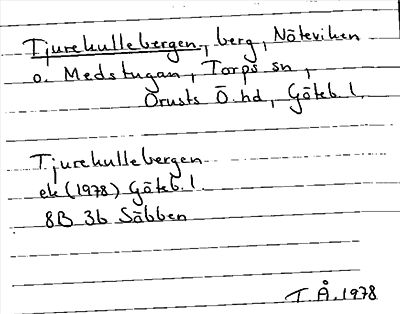 Tjurekullebergen, berg, Nöteviken
o. Medstugan, Torps sn,
Orusts Ö. hd, Göteb. l.
Tjurekullebergen
ek (1978) Göteb. l.
8B 3b Säbben
T. Å. 1978